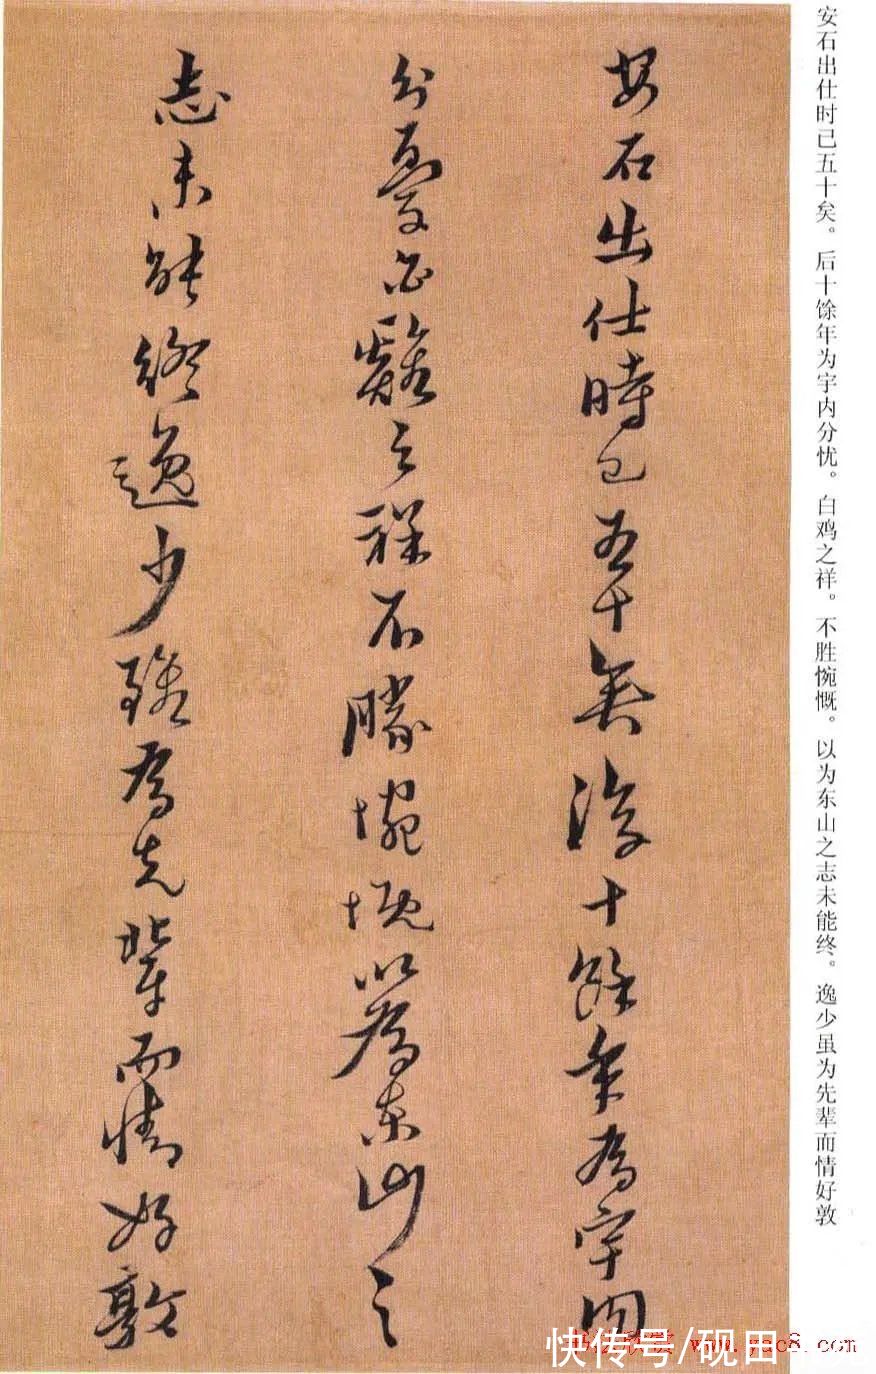 安石出仕時已五十矣後十餘年為宇內
分憂白雞之祥不勝惋慨以為東山之
志未能終逸少雖為先輩而情好敦
安石出仕时已五十矣。后十馀年为宇内分忧。白鸡之祥。不胜惋慨。以为东山之志未能终。逸少虽为先辈而情好敦
快传号/砚田
www.yac8.com